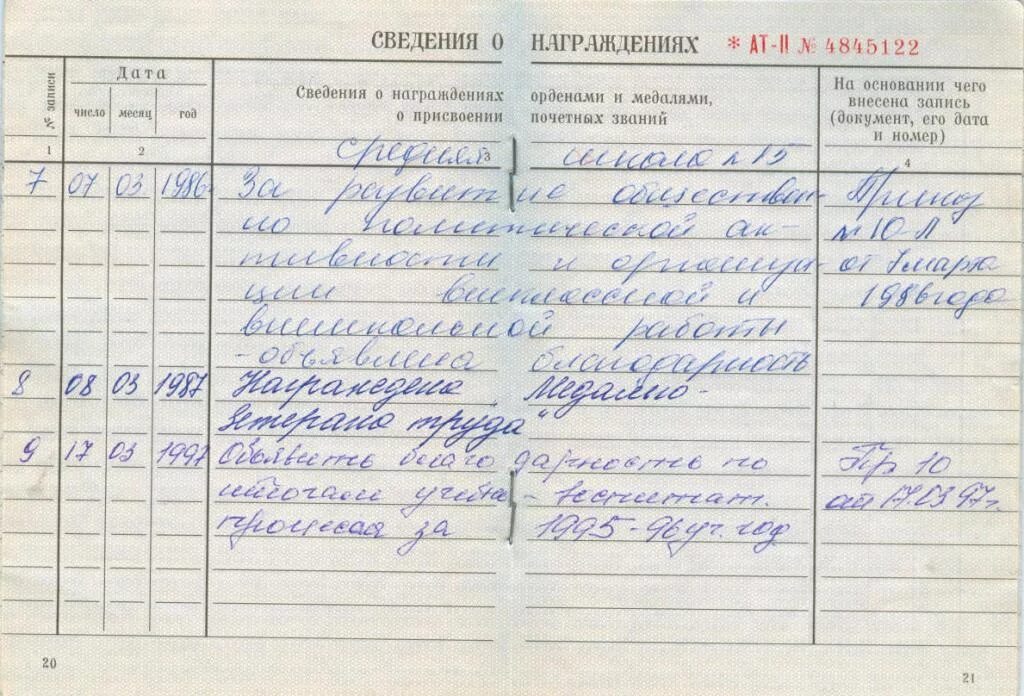 СВЕДЕНИЯ О НАГРАЖДЕНИЯХ * АТ-II № 4845122
№ записи
Дата
число месяц год
Сведения о награждениях орденами и медалями,
о присвоении почетных званий
На основании чего
внесена запись
(документ, его дата
и номер)
1 2 3 4
средняя школа №15
7 07 03 1986 За развитие обществен- Приказ
но политической ак- №10-Л
тивности и организа- от 7 марта
ции внеклассной и 1986 года
внешкольной работы
-объявлена благодарность
8 08 03 1987 Награждена Медалью-
"Ветерана труда"
9 17 03 1997 Объявить благодарность по Пр 10
итогам учебно-воспитат. от 17.03.97г.
процесса за 1995-96 уч. год
20 21